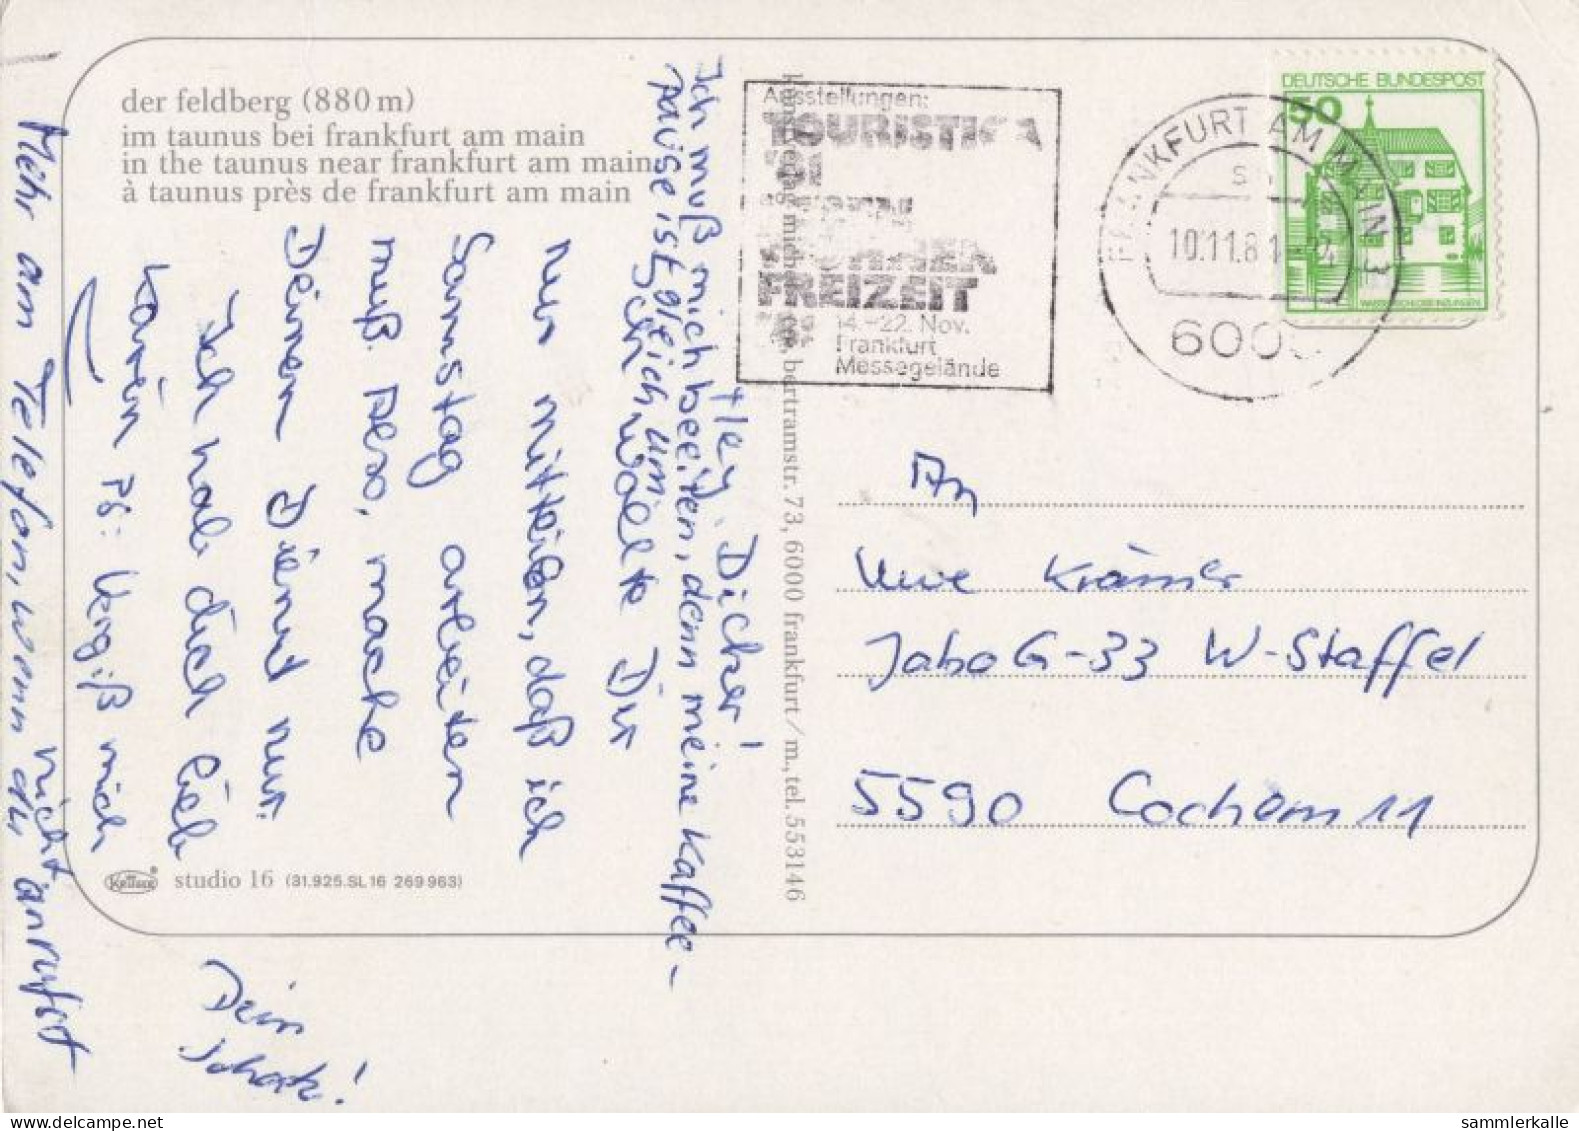 der feldberg (880 m)
im taunus bei frankfurt am main
in the taunus near frankfurt am main
à taunus près de frankfurt am main
Hey, Dicker!
Ich muß mich beeilen, denn meine Kaffee-
pause ist gleich um
Ich wollte Dir
nur mitteilen, daß ich
Samstag arbeiten
muß. Also, mache
Deinen Dienst nur.
Ich hab dich lieb
Karin PS: Vergiß mich nicht
Mehr am Telefon, wenn du anrufst
Dein
Schatz!
studio 16 (31.925.SL 16 269 963)
bertramstr. 73, 6000 frankfurt/m., tel. 553146
Ausstellungen:
TOURISTICA
FREIZEIT
14.-22. Nov.
Frankfurt
Messegelände
FRANKFURT AM MAIN
10.11.81
DEUTSCHE BUNDESPOST
50
WASSERSCHLOSS INZLINGEN
An
Uwe Krämer
Jabo G-33 W-Staffel
5590 Cochem 11
sammlerkalle